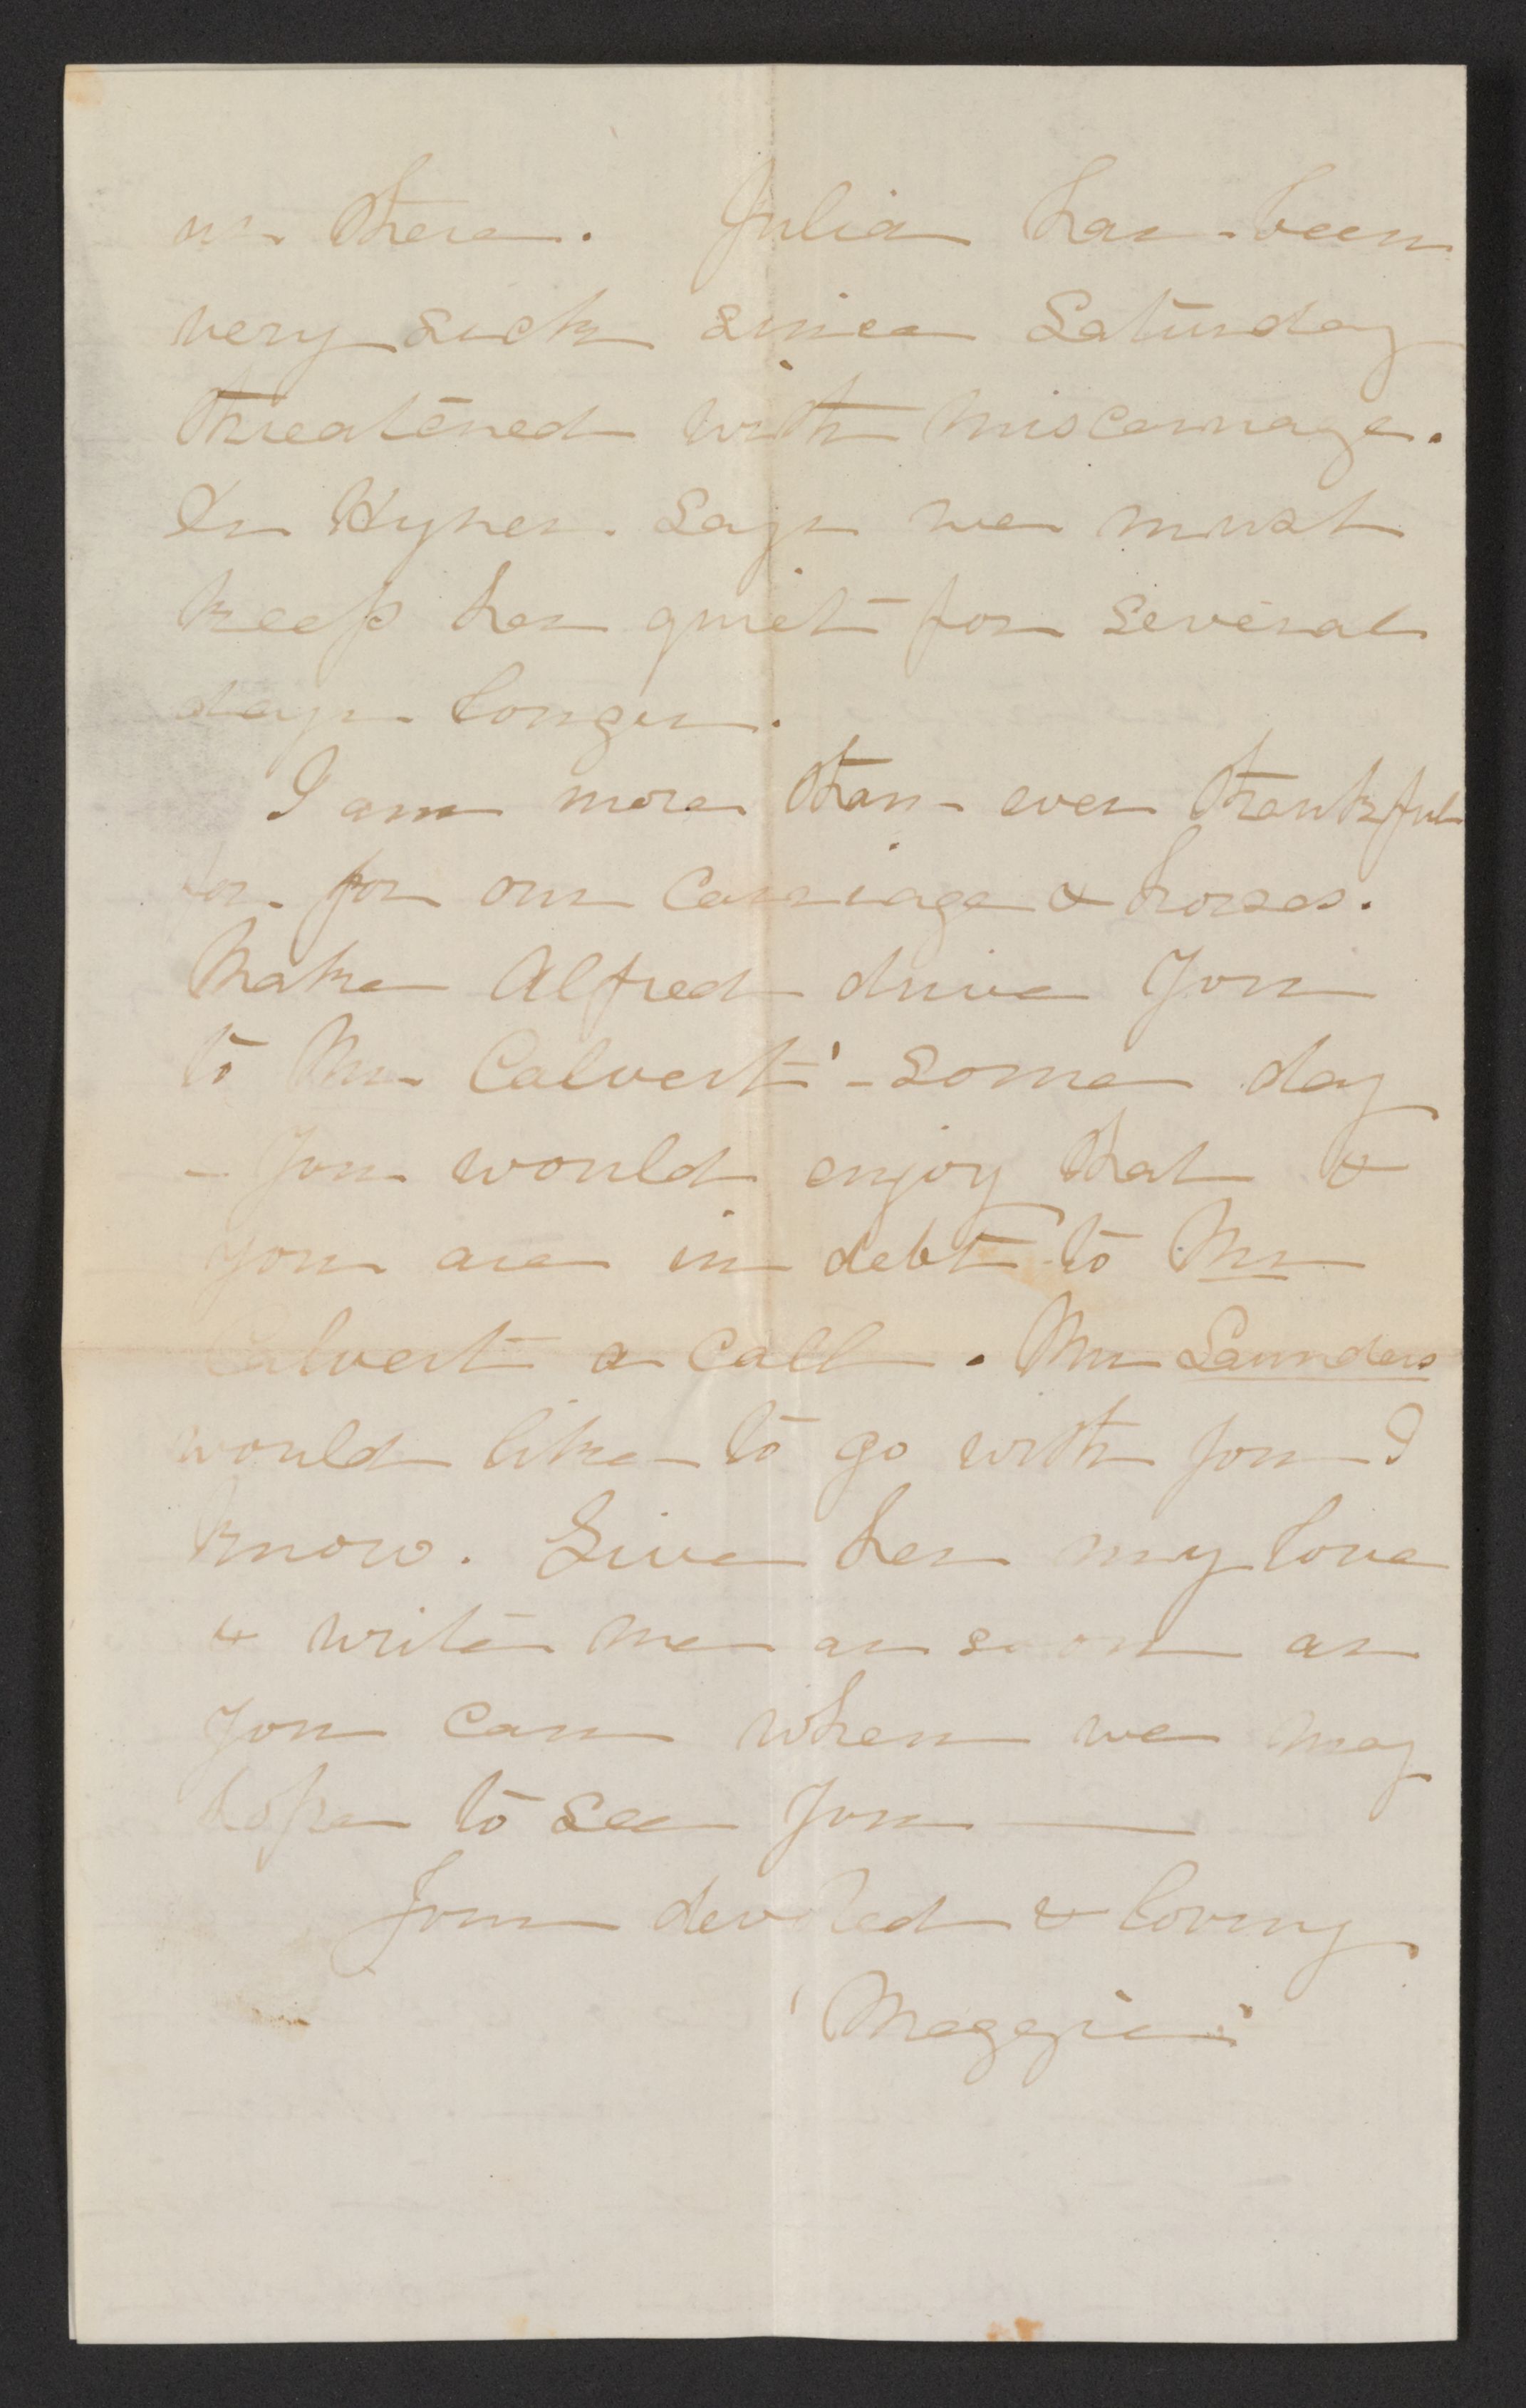 us there. Julia has been
very sick since Saturday
threatened with miscarriage.
Dr Hyner says we must
keep her quiet for several
days longer.
I am more than ever thankful
for our carriage & horses.
Make Alfred drive you
to Mr Calverts' some day
- you would enjoy that &
you are in debt to Mrs
Calvert a call. Mrs Saunders
would like to go with you I
know. Give her my love
& write me as soon as
you can when we may
hope to see you
Your devoted & loving
"Maggie"